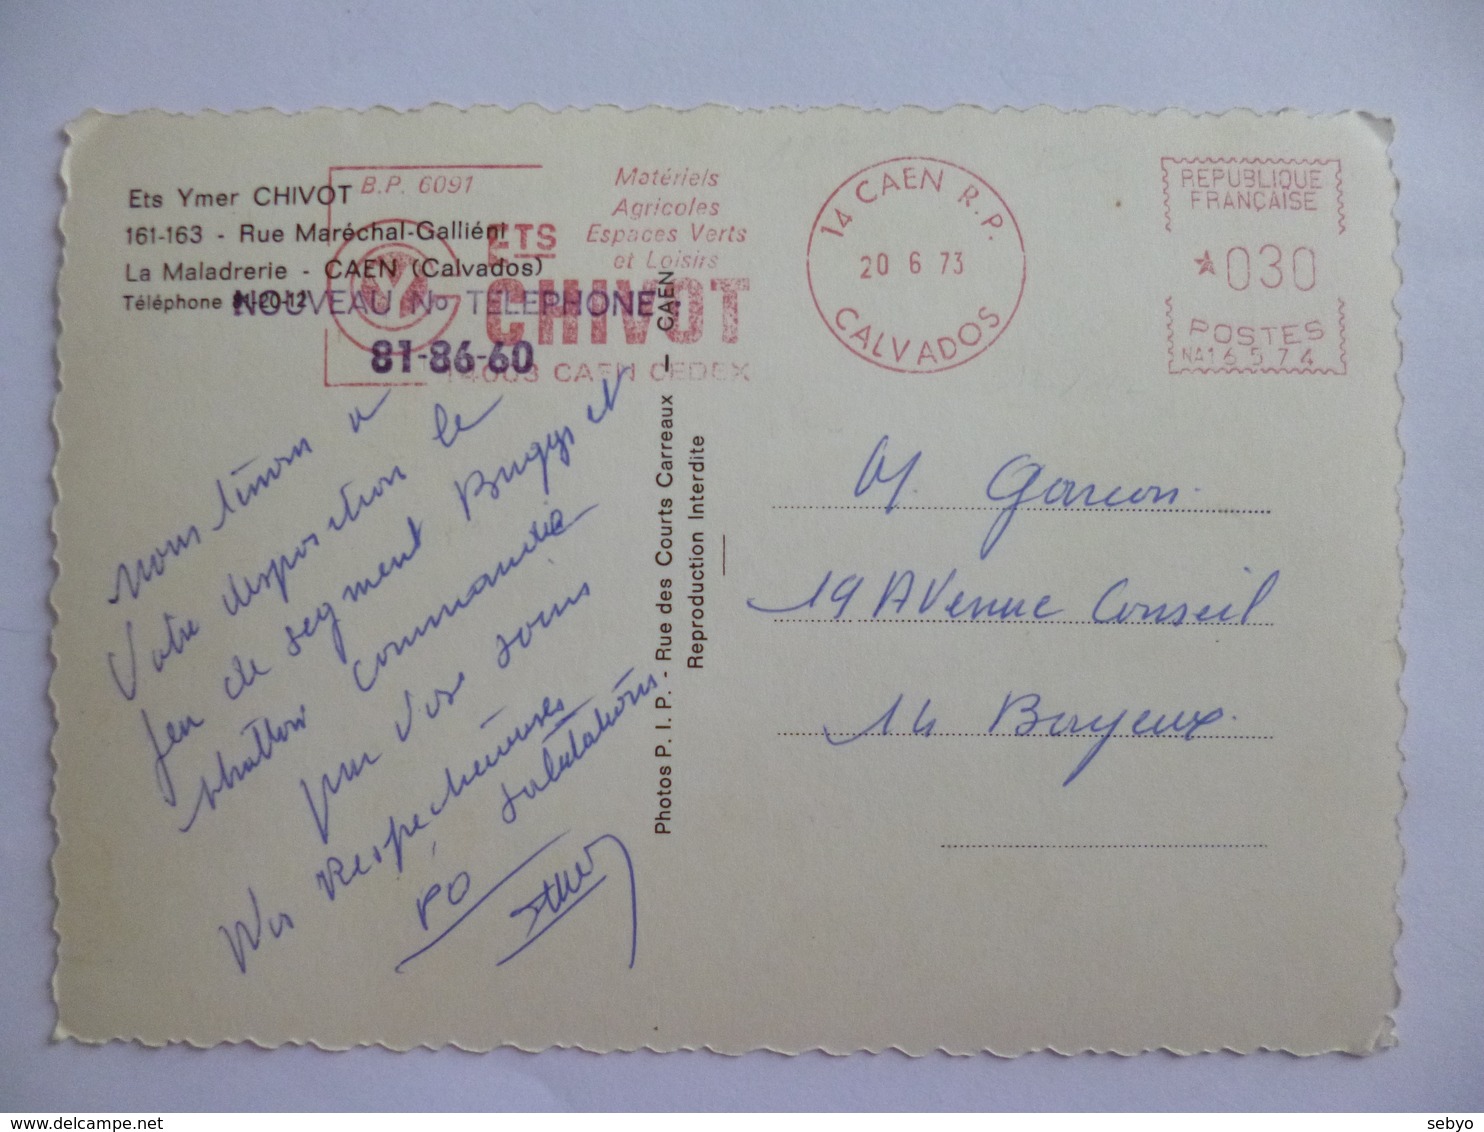 Ets Ymer CHIVOT
161-163 - Rue Maréchal-Galliéni
La Maladrerie - CAEN (Calvados)
Téléphone 81-20-12
NOUVEAU No TELEPHONE :
81-86-60
B.P. 6091
ETS
CHIVOT
14003 CAEN CEDEX
Matériels
Agricoles
Espaces Verts
et Loisirs
14 CAEN R.P.
20 6 73
CALVADOS
REPUBLIQUE
FRANÇAISE
030
POSTES
NA16574
nous tenons a
Votre disposition le
jeu de segment Briggs et
stratton commandé
par vos soins
Nos Respectueuses
salutations
PO
Photos P. I. P. - Rue des Courts Carreaux - CAEN
Reproduction Interdite
M. Garcon.
19 AVenue Conseil
14 Bayeux.
delcampe.net
sebyo